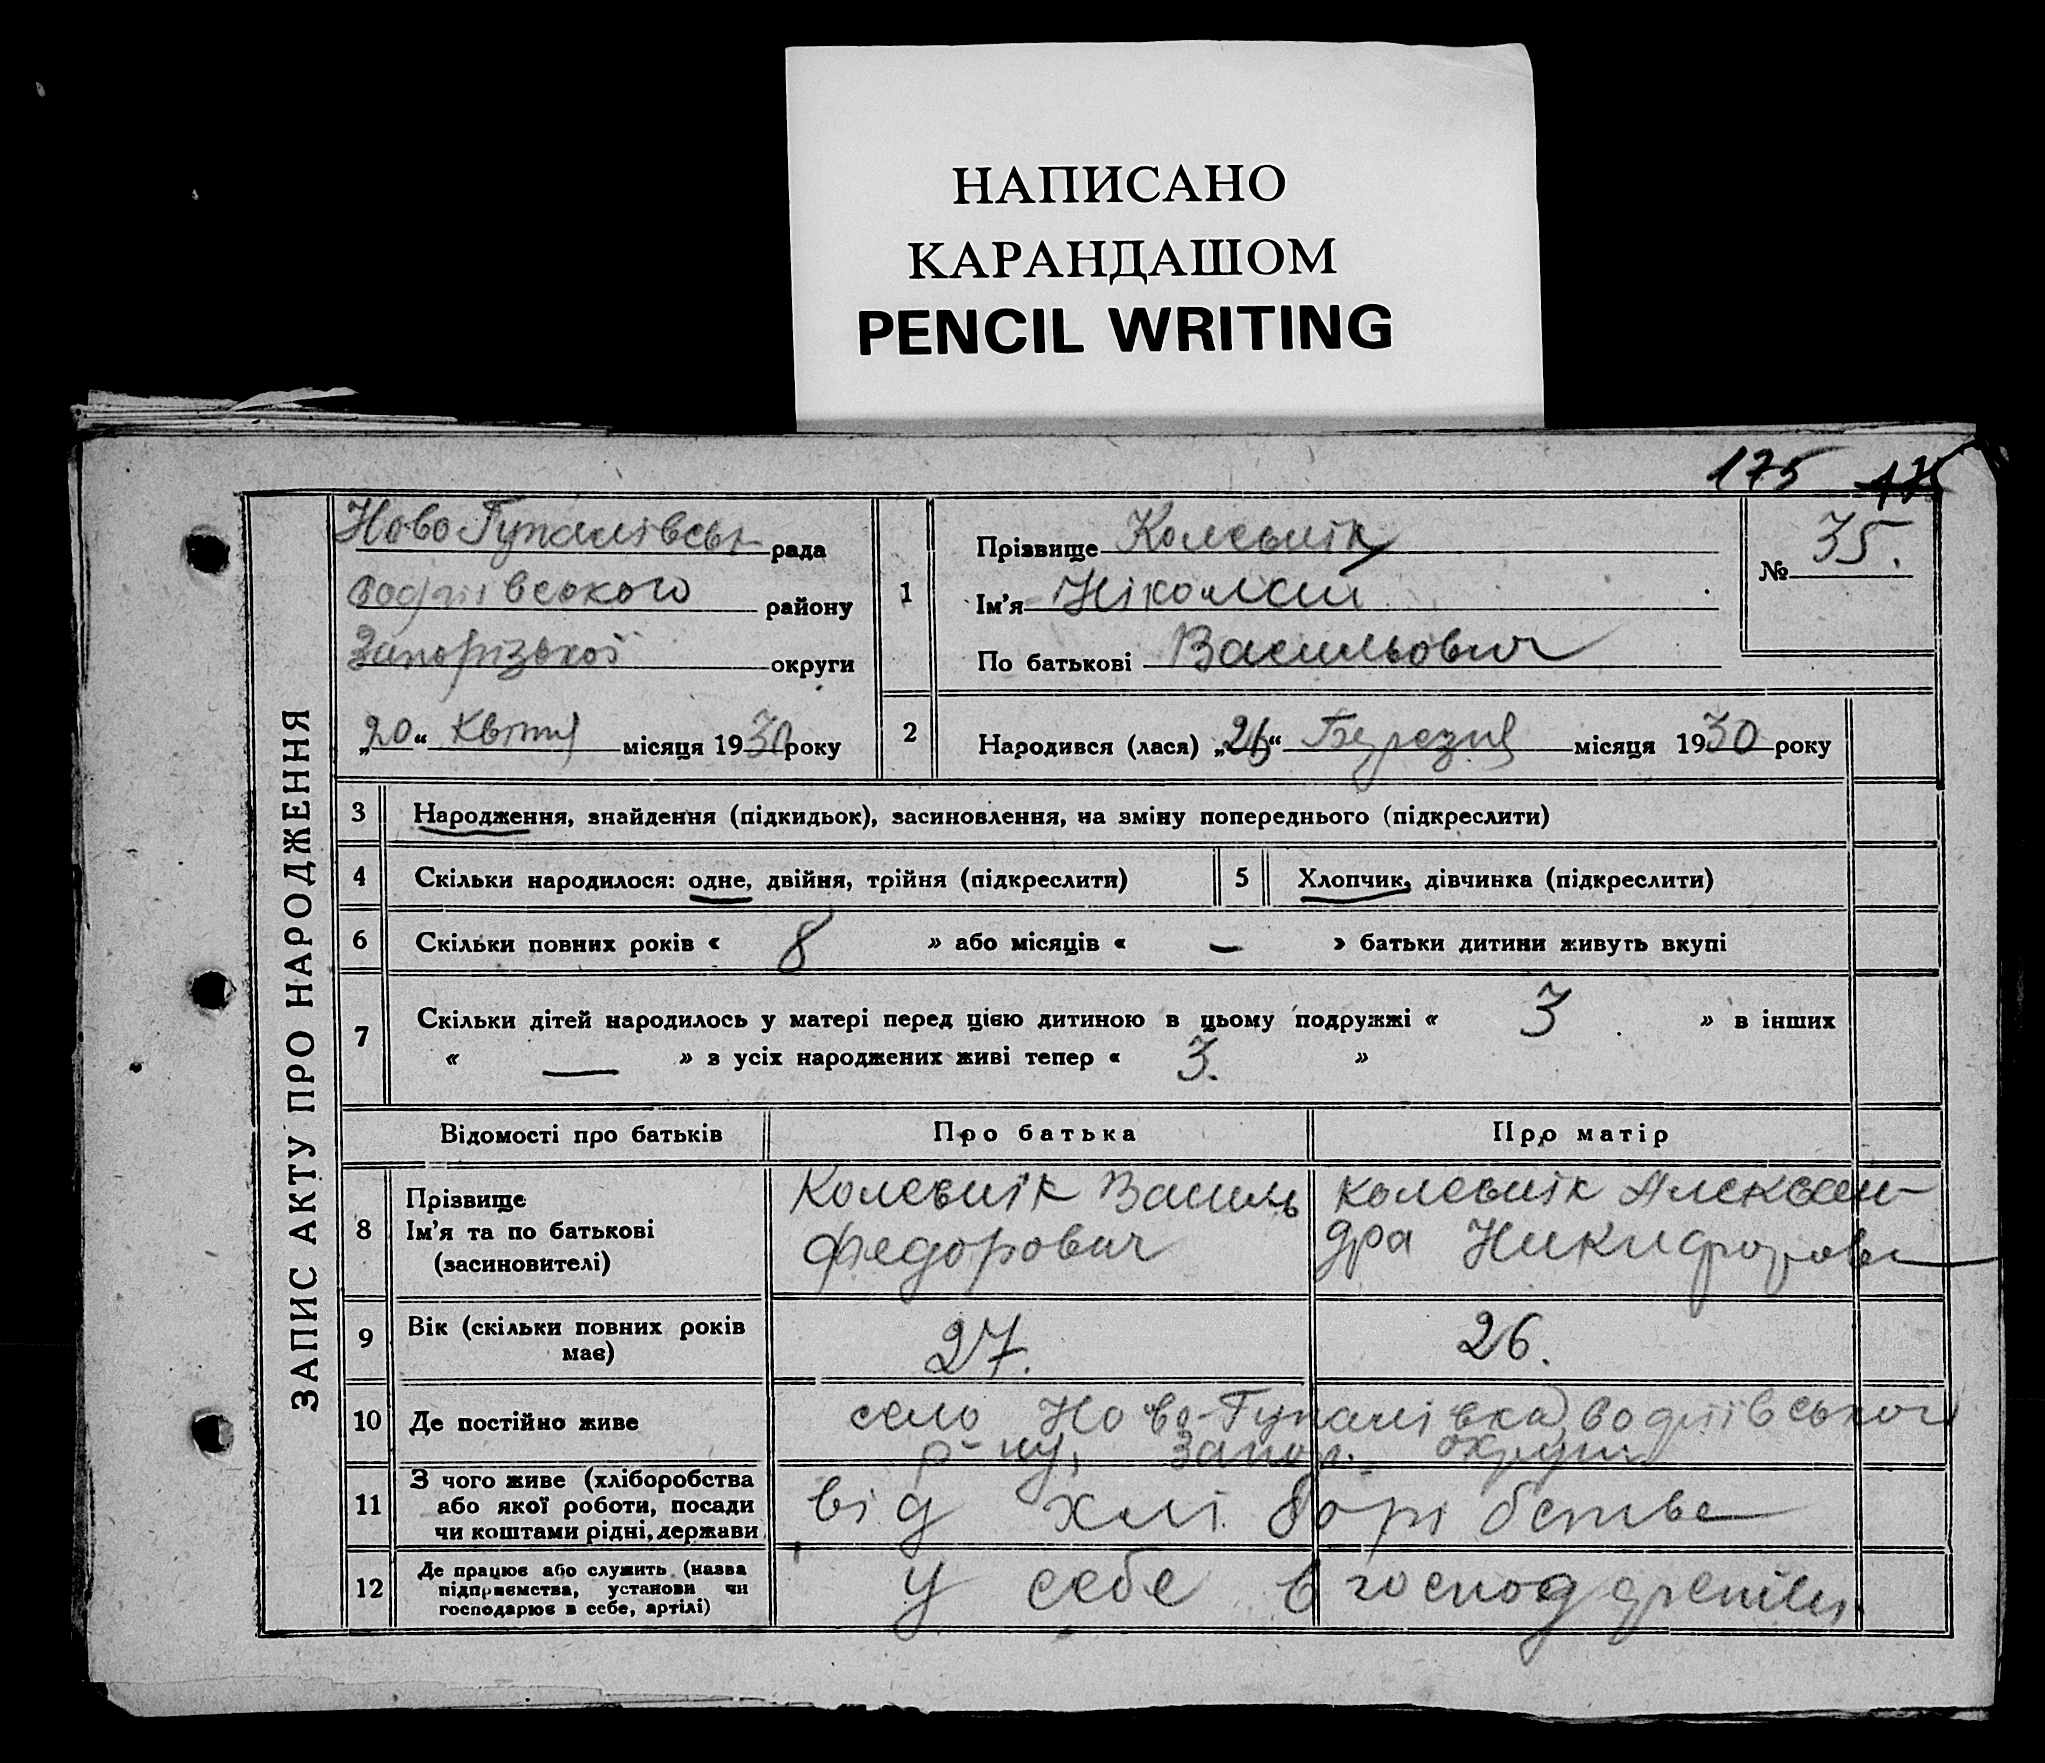 НАПИСАНО
КАРАНДАШОМ
PENCIL WRITING
175 175
ЗАПИС АКТУ ПРО НАРОДЖЕННЯ
Ново Гупалівськ рада
Софіївського району
Запорізької округи
„20“ Квітня місяця 1930 року
1
Прізвище Колесник
Ім'я Ніколай
По батькові Васильович
№ 35.
2
Народився (лася) „26“ Березня місяця 1930 року
3 Народження, знайдення (підкидьок), засиновлення, на зміну попереднього (підкреслити)
4 Скільки народилося: одне, двійня, трійня (підкреслити) 5 Хлопчик, дівчинка (підкреслити)
6 Скільки повних років « 8 » або місяців « – » батьки дитини живуть вкупі
7 Скільки дітей народилось у матері перед цією дитиною в цьому подружжі « 3 » в інших
« — » з усіх народжених живі тепер « 3. »
Відомості про батьків Про батька Про матір
8 Прізвище
Ім'я та по батькові
(засиновителі)
Колеснік Василь
Федорович
Колеснік Александра
Никифоров
9 Вік (скільки повних років
має)
27. 26.
10 Де постійно живе
село Ново-Гупалівка, Софіївського
р-ну, Запор. округи
11 З чого живе (хліборобства
або якої роботи, посади
чи коштами рідні, держави
від хліборобства
12 Де працює або служить (назва
підприємства, установи чи
господарює в себе, артілі)
у себе в господарстві